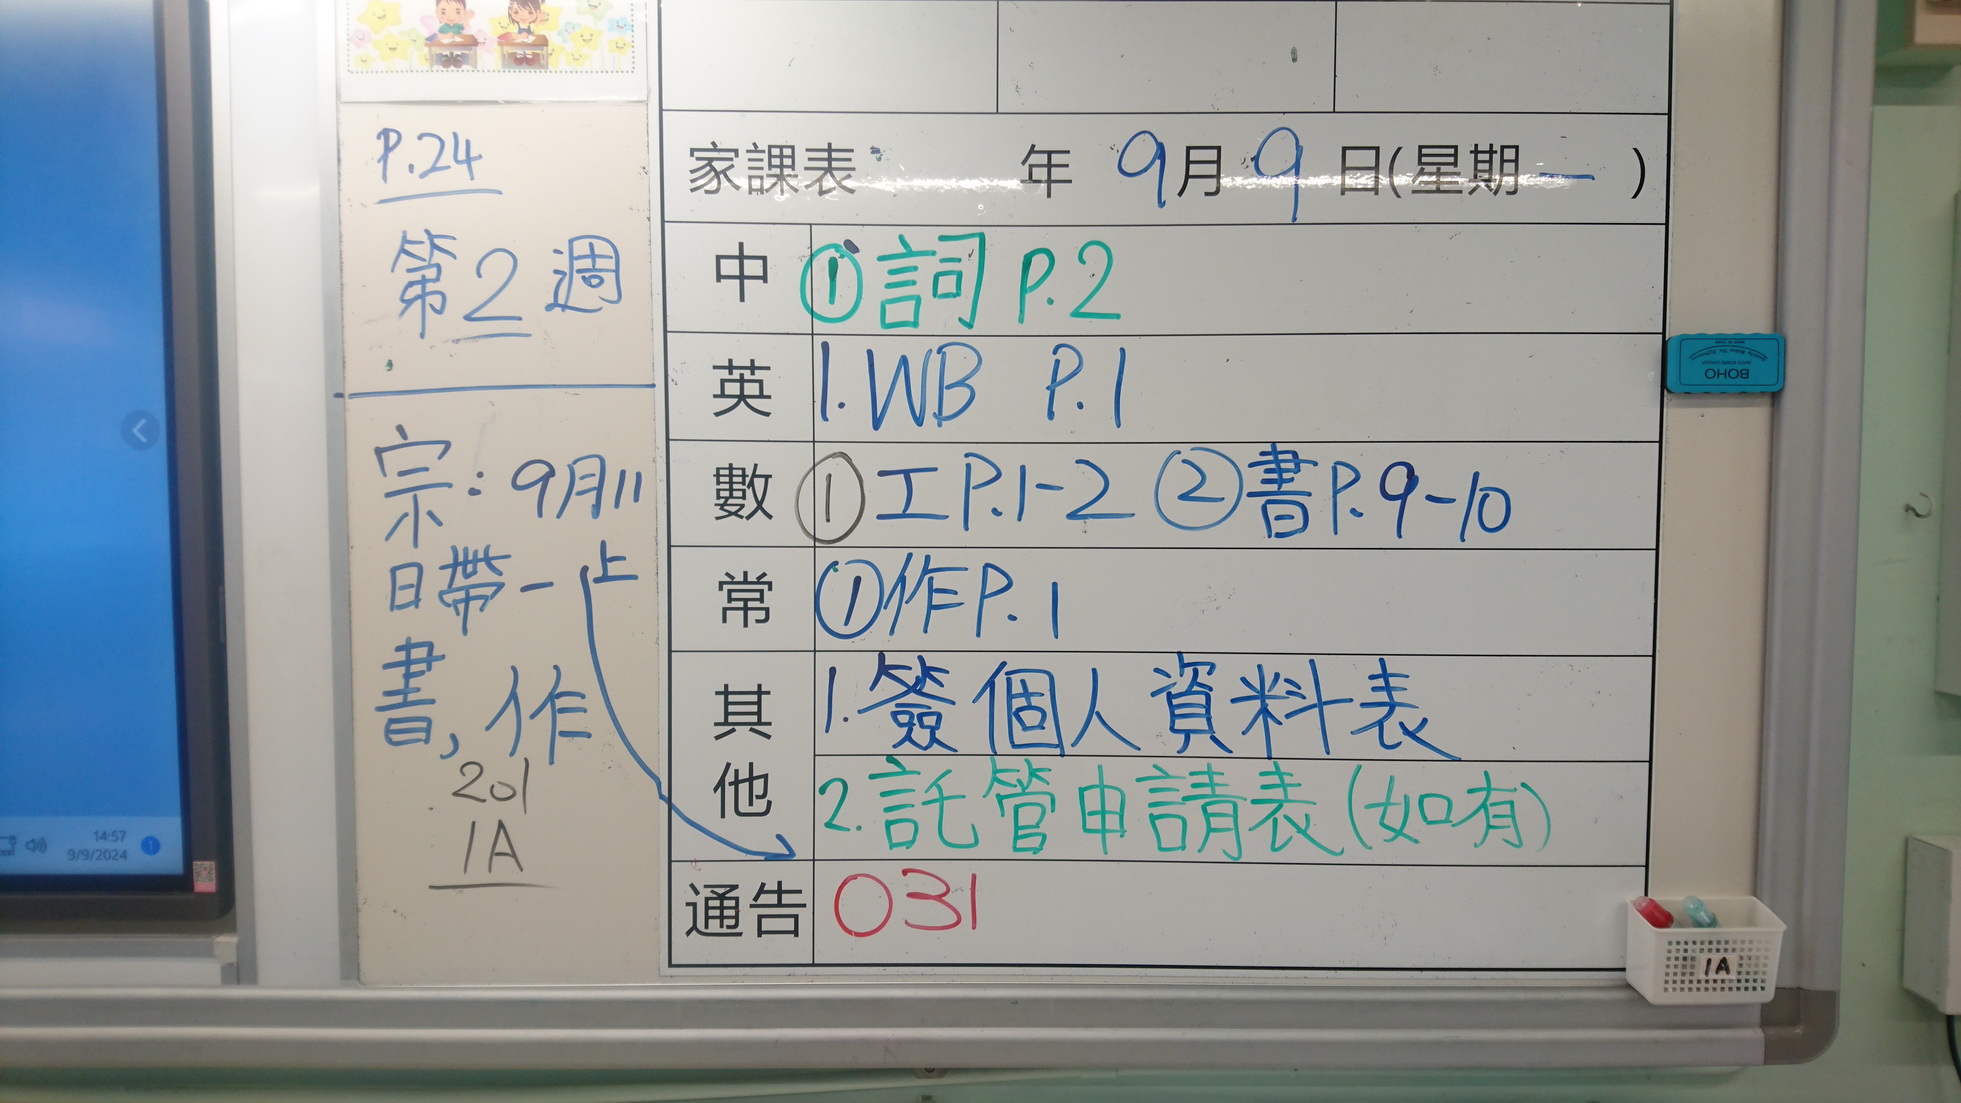 P.24
第2週
宗：9月11
日帶一上
書，作
201
1A
家課表 年 9月9日(星期一)
中 ①詞 P.2
英 1.WB P.1
數 ①工P.1-2 ②書P.9-10
常 ①作P.1
其他 1.簽個人資料表
2.託管申請表(如有)
通告 031
14:57
9/9/2024
1
BOHO
1A